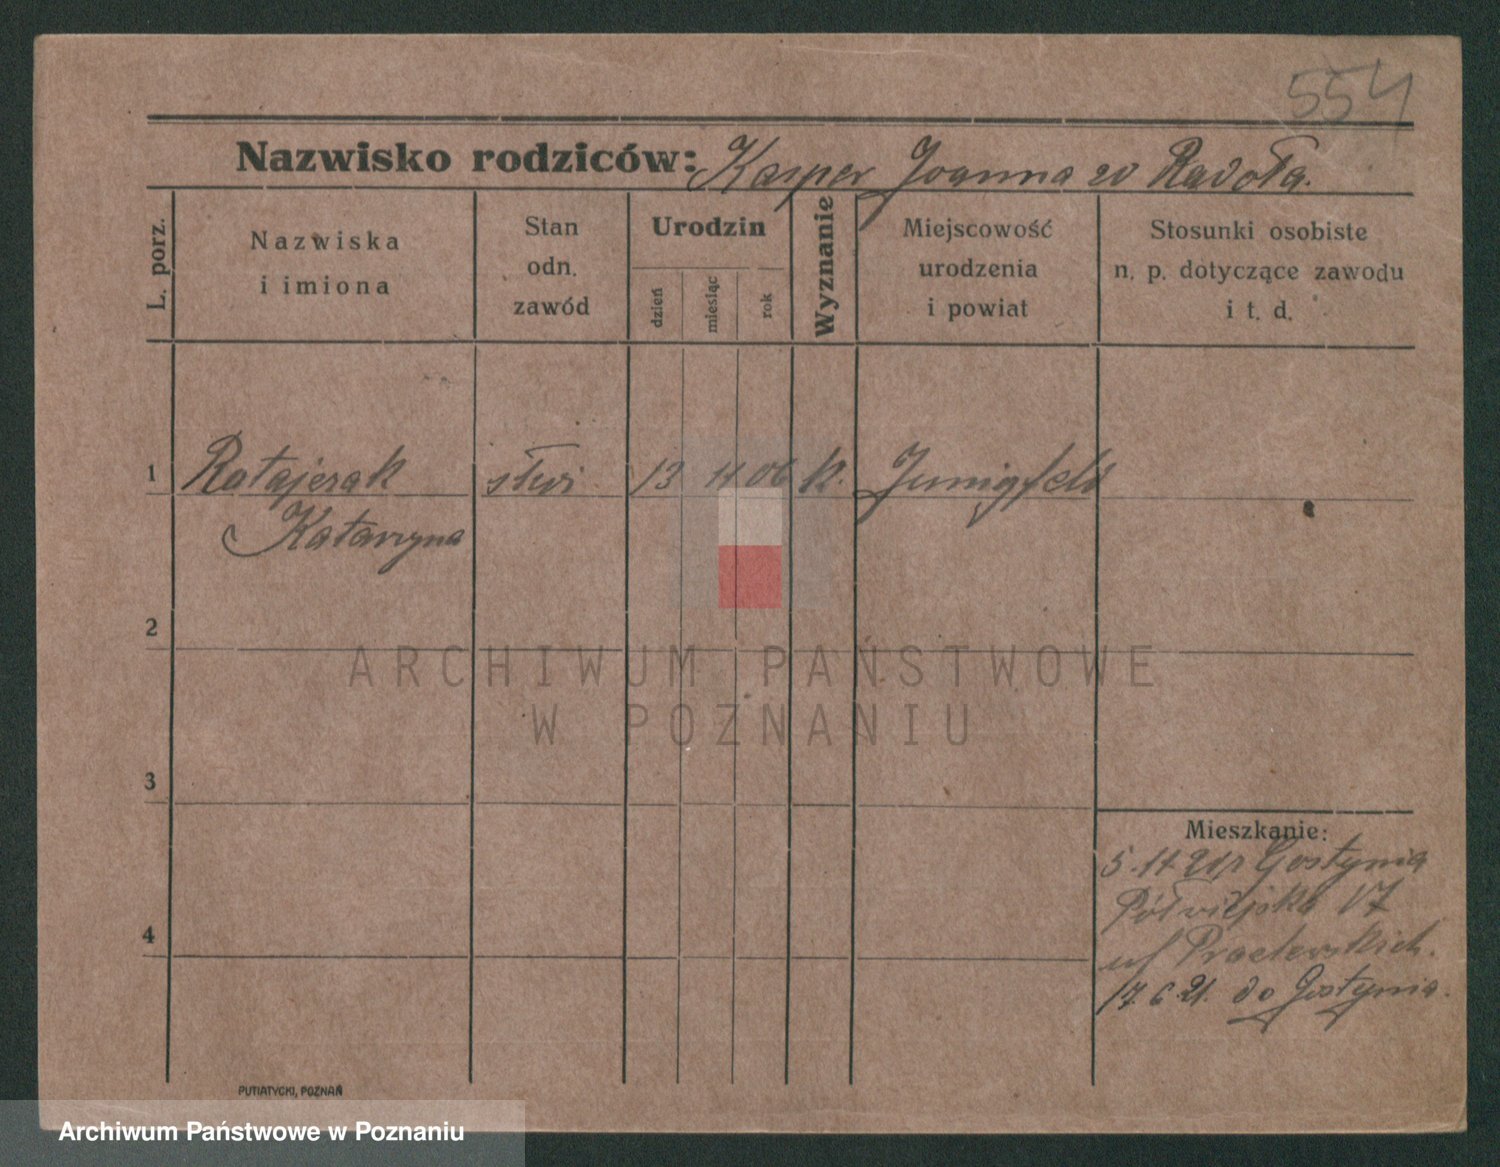 554
Nazwisko rodziców: Kasper Joanna zd Radoła.
L. porz.
Nazwiska
i imiona
Stan
odn.
zawód
Urodzin
dzień
miesiąc
rok
Wyznanie
Miejscowość
urodzenia
i powiat
Stosunki osobiste
n. p. dotyczące zawodu
i t. d.
1 Ratajczak służ 13 11 06 k.
Katarzyna
2
ARCHIWUM PAŃSTWOWE
W POZNANIU
3
Mieszkanie:
5 11 20 z Gostynia
Półwiejska 17
4
u/
17.6 21. do Gostynia.
PUTIATYCKI, POZNAŃ
Archiwum Państwowe w Poznaniu